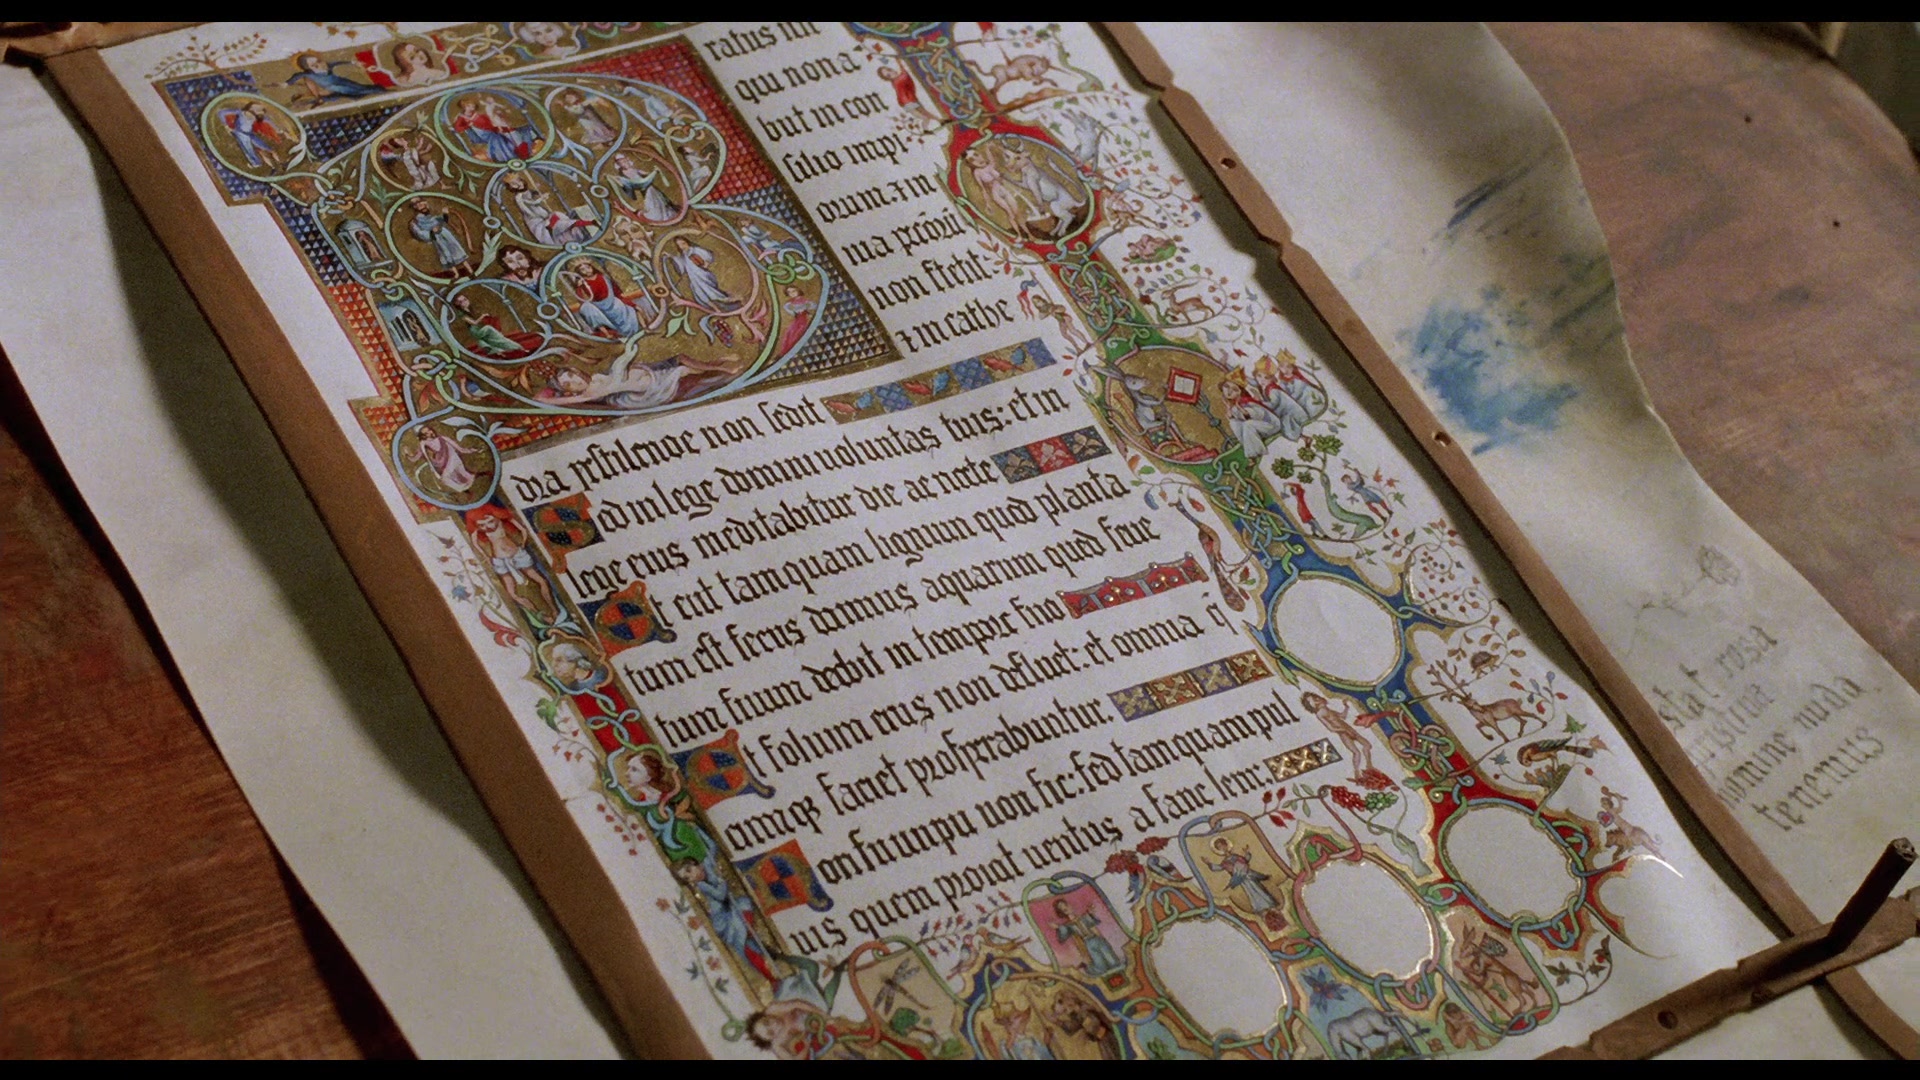 ratus uir
qui non a
but in con
silio impi
orum: ⁊ in
uia pccorū
non stetit:
⁊ in cathe
dra pestilencie non sedit
Sed in lege domini uoluntas eius: et in
lege eius meditabitur die ac nocte
Et erit tamquam lignum quod planta
tum est secus aquarum quod fruc
tum suum dabit in tempore suo
Et folium eius non defluet: et omnia q̄
cumqꝫ faciet prosperabuntur.
Non sic impii non sic: sed tamquam pul
uis quem proicit uentus a facie terre:
stat rosa
pristina
nomine nuda
tenemus